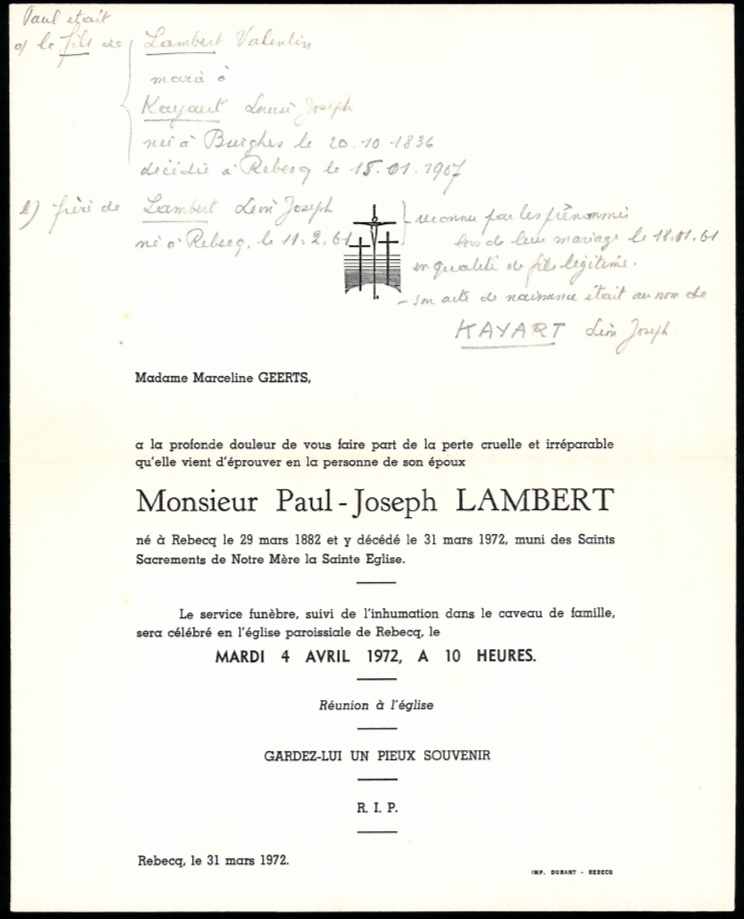 Paul était
a) le fils de Lambert Valentin
marié à
Kayaut Louise Joseph
née à Bierghes le 20.10.1836
décédée à Rebecq le 18.01.1907
b) frère de Lambert Léon Joseph
né à Rebecq, le 11.2.61
reconnu par les prénommés
lors de leur mariage le 18.01.61
en qualité de fils légitime.
- son acte de naissance était au nom de
KAYART Léon Joseph.
Madame Marceline GEERTS,
a la profonde douleur de vous faire part de la perte cruelle et irréparable
qu'elle vient d'éprouver en la personne de son époux
Monsieur Paul-Joseph LAMBERT
né à Rebecq le 29 mars 1882 et y décédé le 31 mars 1972, muni des Saints
Sacrements de Notre Mère la Sainte Eglise.
Le service funèbre, suivi de l'inhumation dans le caveau de famille,
sera célébré en l'église paroissiale de Rebecq, le
MARDI 4 AVRIL 1972, A 10 HEURES.
Réunion à l'église
GARDEZ-LUI UN PIEUX SOUVENIR
R. I. P.
Rebecq, le 31 mars 1972.
IMP. DURANT - REBECQ